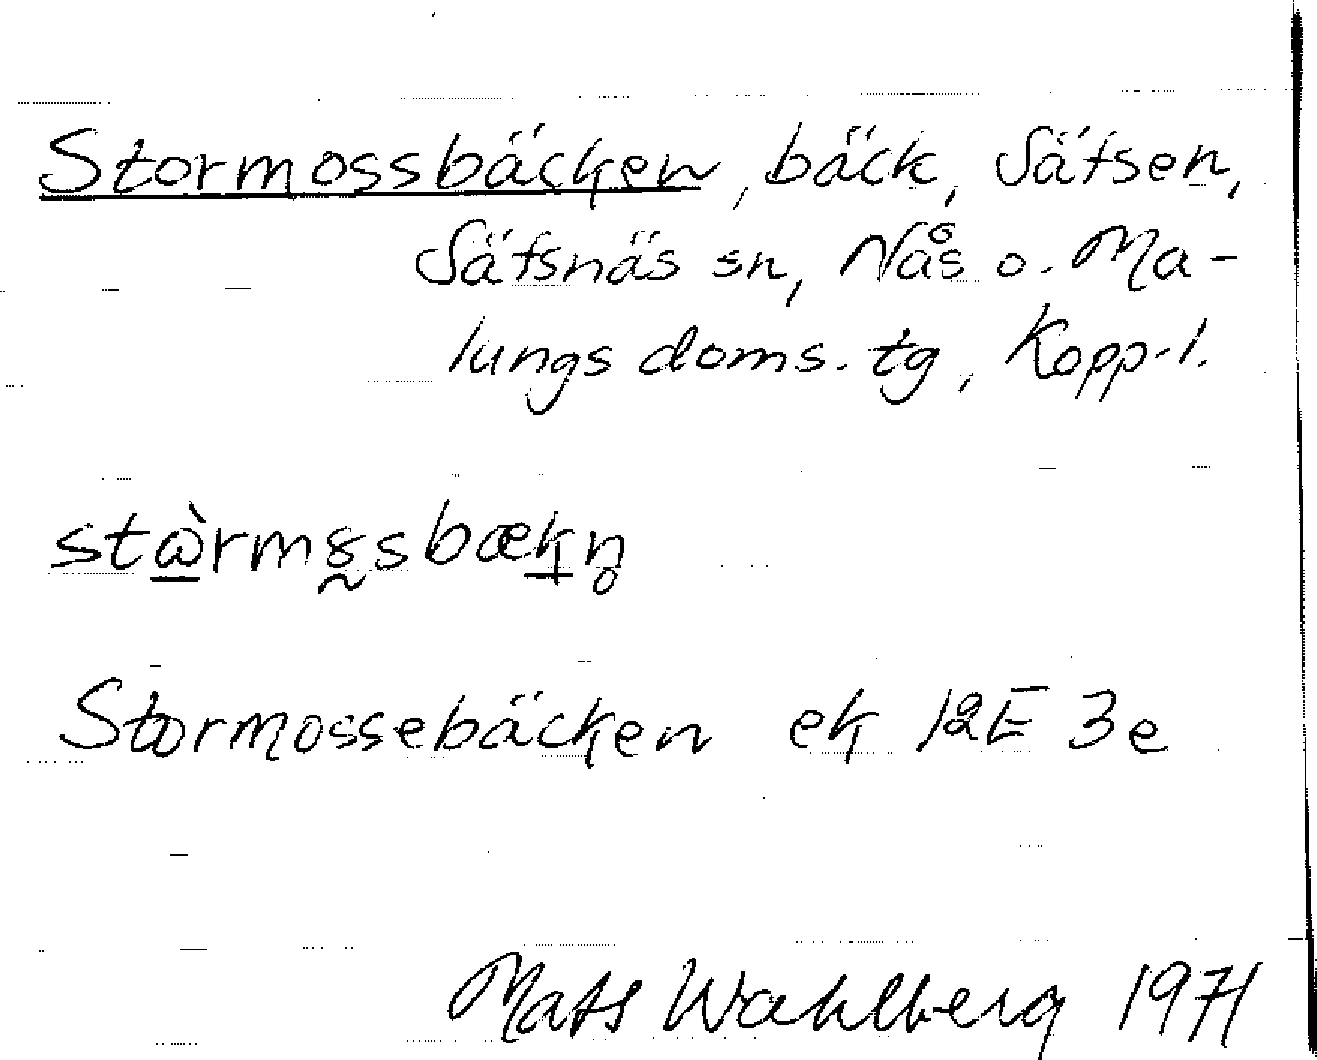 Stormossbäcken, bäck, Sätsen,
Säfsnäs sn, Nås o. Ma-
lungs doms. tg, Kopp. l.
Stormossebäcken ek 12E 3e
Mats Wahlberg 1971